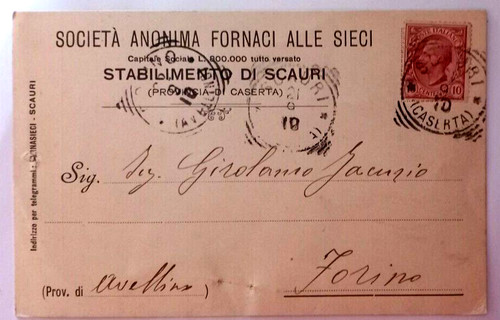 SOCIETÀ ANONIMA FORNACI ALLE SIECI
Capitale Sociale L. 800.000 tutto versato
STABILIMENTO DI SCAURI
(PROVINCIA DI CASERTA)
Sig. Sig. Girolamo Jacuzio
Torino
(Prov. di Avellino)
Indirizzo per telegrammi: FORNASIECI - SCAURI
(CASERTA)
10